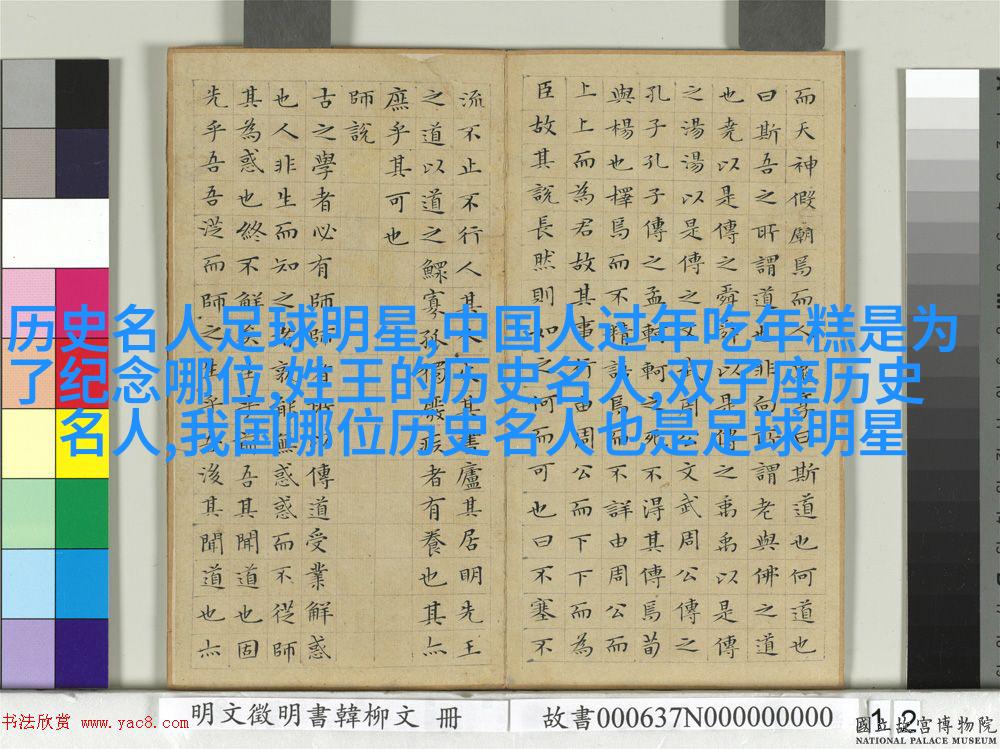 历史名人足球明星,中国人过年吃年糕是为
了纪念哪位,姓王的历史名人,双子座历史
名人,我国哪位历史名人也是足球明星
而天神假廟焉而人曰斯道也何道也
曰斯吾之所謂道也非向所謂老與佛之道
也堯以是傳之舜舜以是傳之禹禹以是傳
之湯湯以是傳之文武周公文武周公傳之
孔子孔子傳之孟軻軻之死不得其傳焉荀
與楊也擇焉而不精語焉而不詳由周公而
上上而為君故其事行由周公而下下而為
臣故其說長然則如之何而可也曰不塞不
流不止不行人其人火其書廬其居明先王
之道以道之鰥寡孤獨廢疾者有養也其亦
庶乎其可也
師說
古之學者必有師師者所以傳道受業解惑
也人非生而知之者孰能無惑惑而不從師
其為惑也終不解矣生乎吾前其聞道也固
先乎吾吾從而師之生乎吾後其聞道也亦
明文徵明書韓柳文 冊
故書000637N000000000
12
书法欣赏 www.yac8.com
國立故宮博物院
NATIONAL PALACE MUSEUM